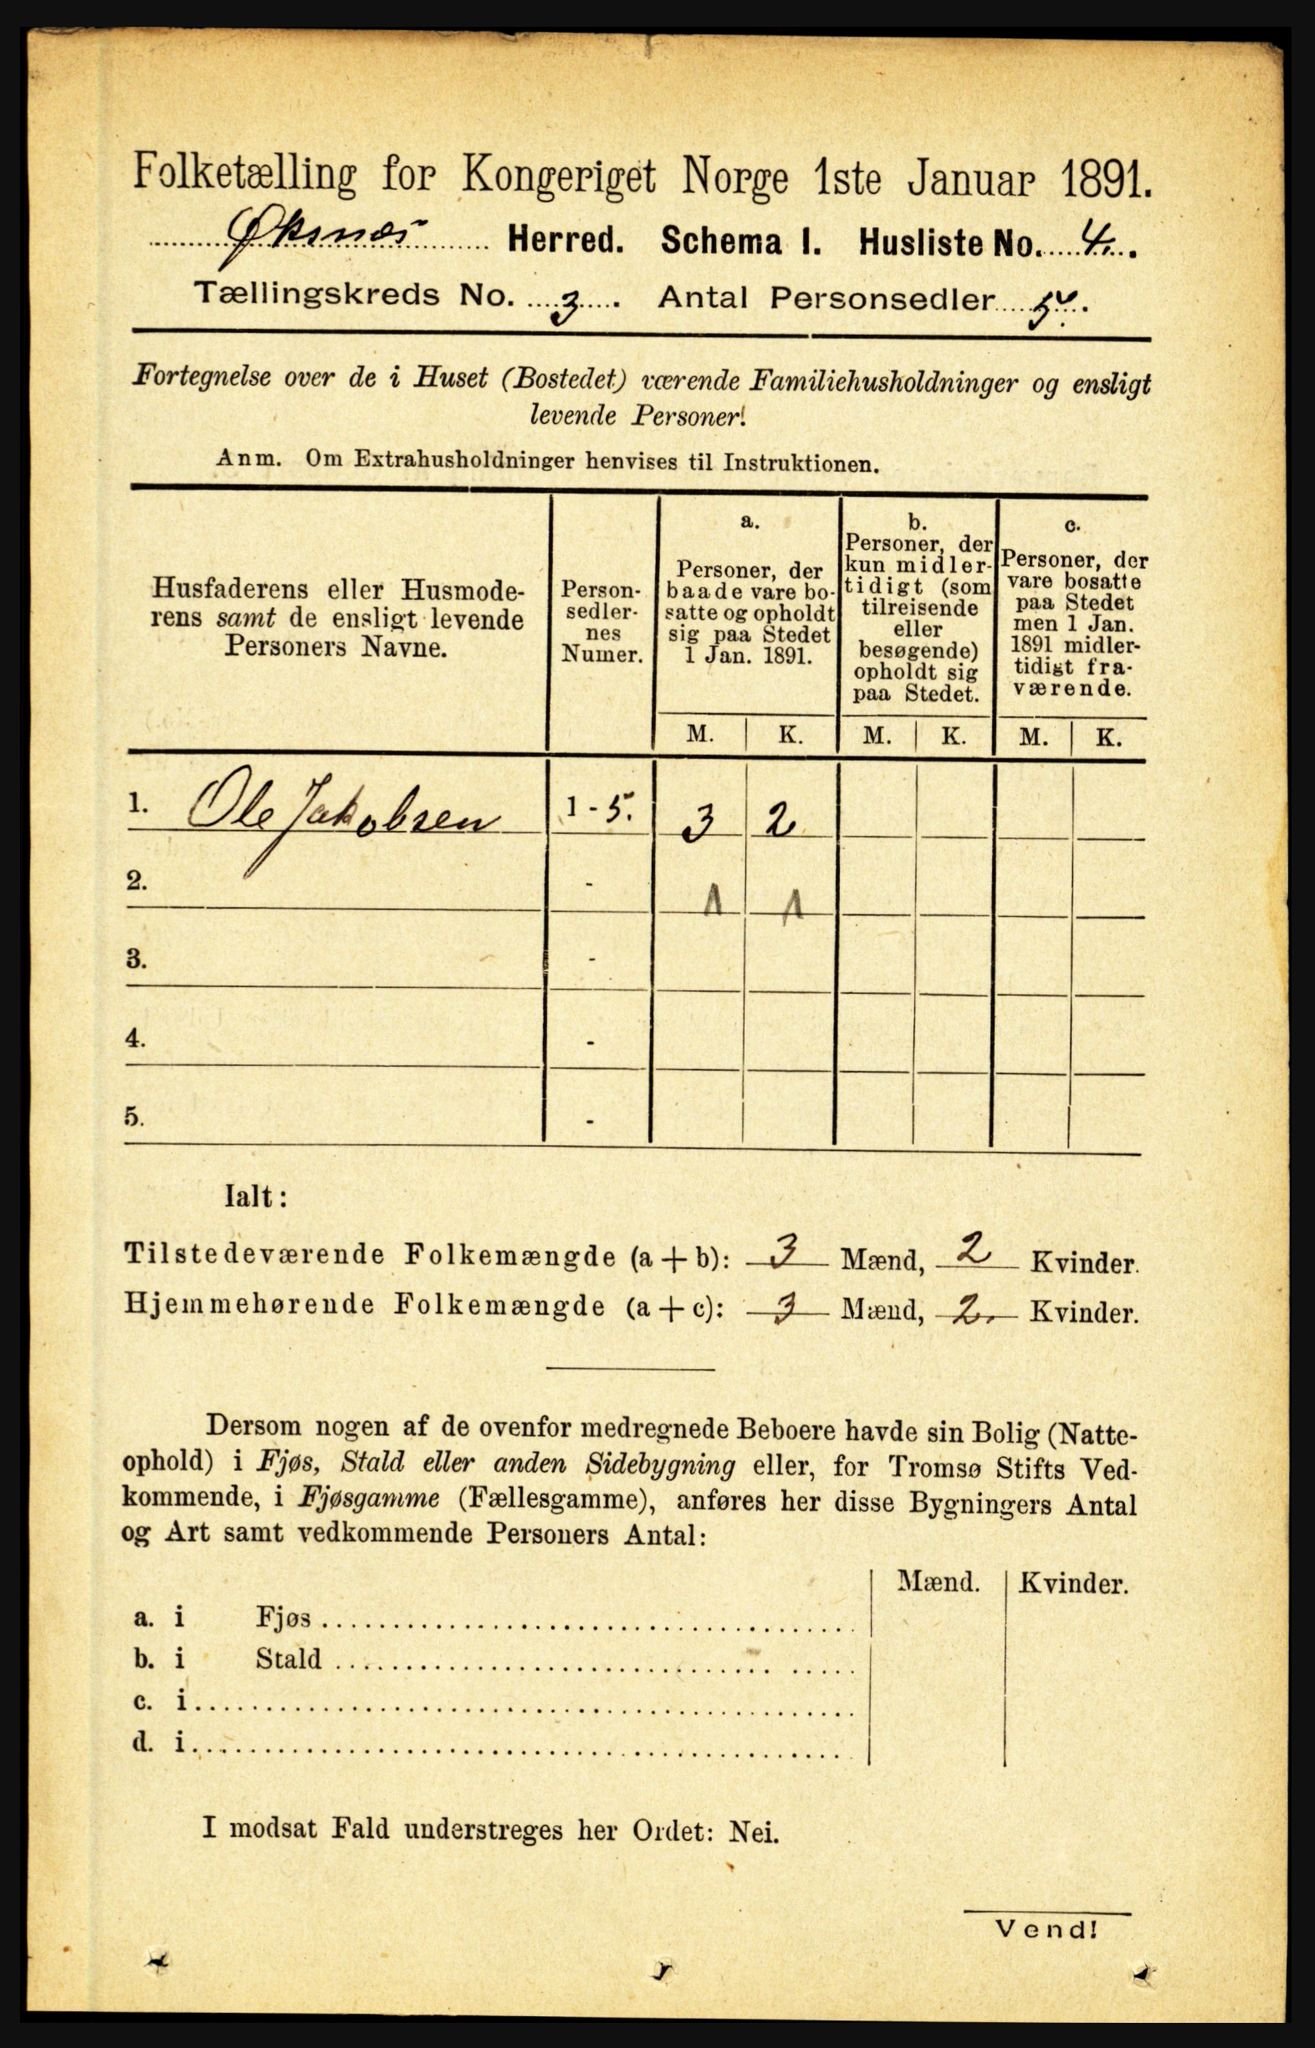 Folketælling for Kongeriget Norge 1ste Januar 1891.
Øksnæs Herred. Schema I. Husliste No. 4.
Tællingskreds No. 3. Antal Personsedler 5.
Fortegnelse over de i Huset (Bostedet) værende Familiehusholdninger og ensligt
levende Personer.
Anm. Om Extrahusholdninger henvises til Instruktionen.
Husfaderens eller Husmode-
rens samt de ensligt levende
Personers Navne.
Person-
sedler-
nes
Numer.
a.
Personer, der
baade vare bo-
satte og opholdt
sig paa Stedet
1 Jan. 1891.
b.
Personer, der
kun midler-
tidigt (som
tilreisende
eller
besøgende)
opholdt sig
paa Stedet.
c.
Personer, der
vare bosatte
paa Stedet
men 1 Jan.
1891 midler-
tidigt fra-
værende.
M. K. M. K. M. K.
1. Ole Jakobsen 1 - 5. 3 2
2. - 1 1
3. -
4. -
5. -
Ialt:
Tilstedeværende Folkemængde (a + b): 3 Mænd, 2 Kvinder.
Hjemmehørende Folkemængde (a + c): 3 Mænd, 2. Kvinder.
Dersom nogen af de ovenfor medregnede Beboere havde sin Bolig (Natte-
ophold) i Fjøs, Stald eller anden Sidebygning eller, for Tromsø Stifts Ved-
kommende, i Fjøsgamme (Fællesgamme), anføres her disse Bygningers Antal
og Art samt vedkommende Personers Antal:
Mænd. Kvinder.
a. i Fjøs
b. i Stald
c. i
d. i
I modsat Fald understreges her Ordet: Nei.
Vend!